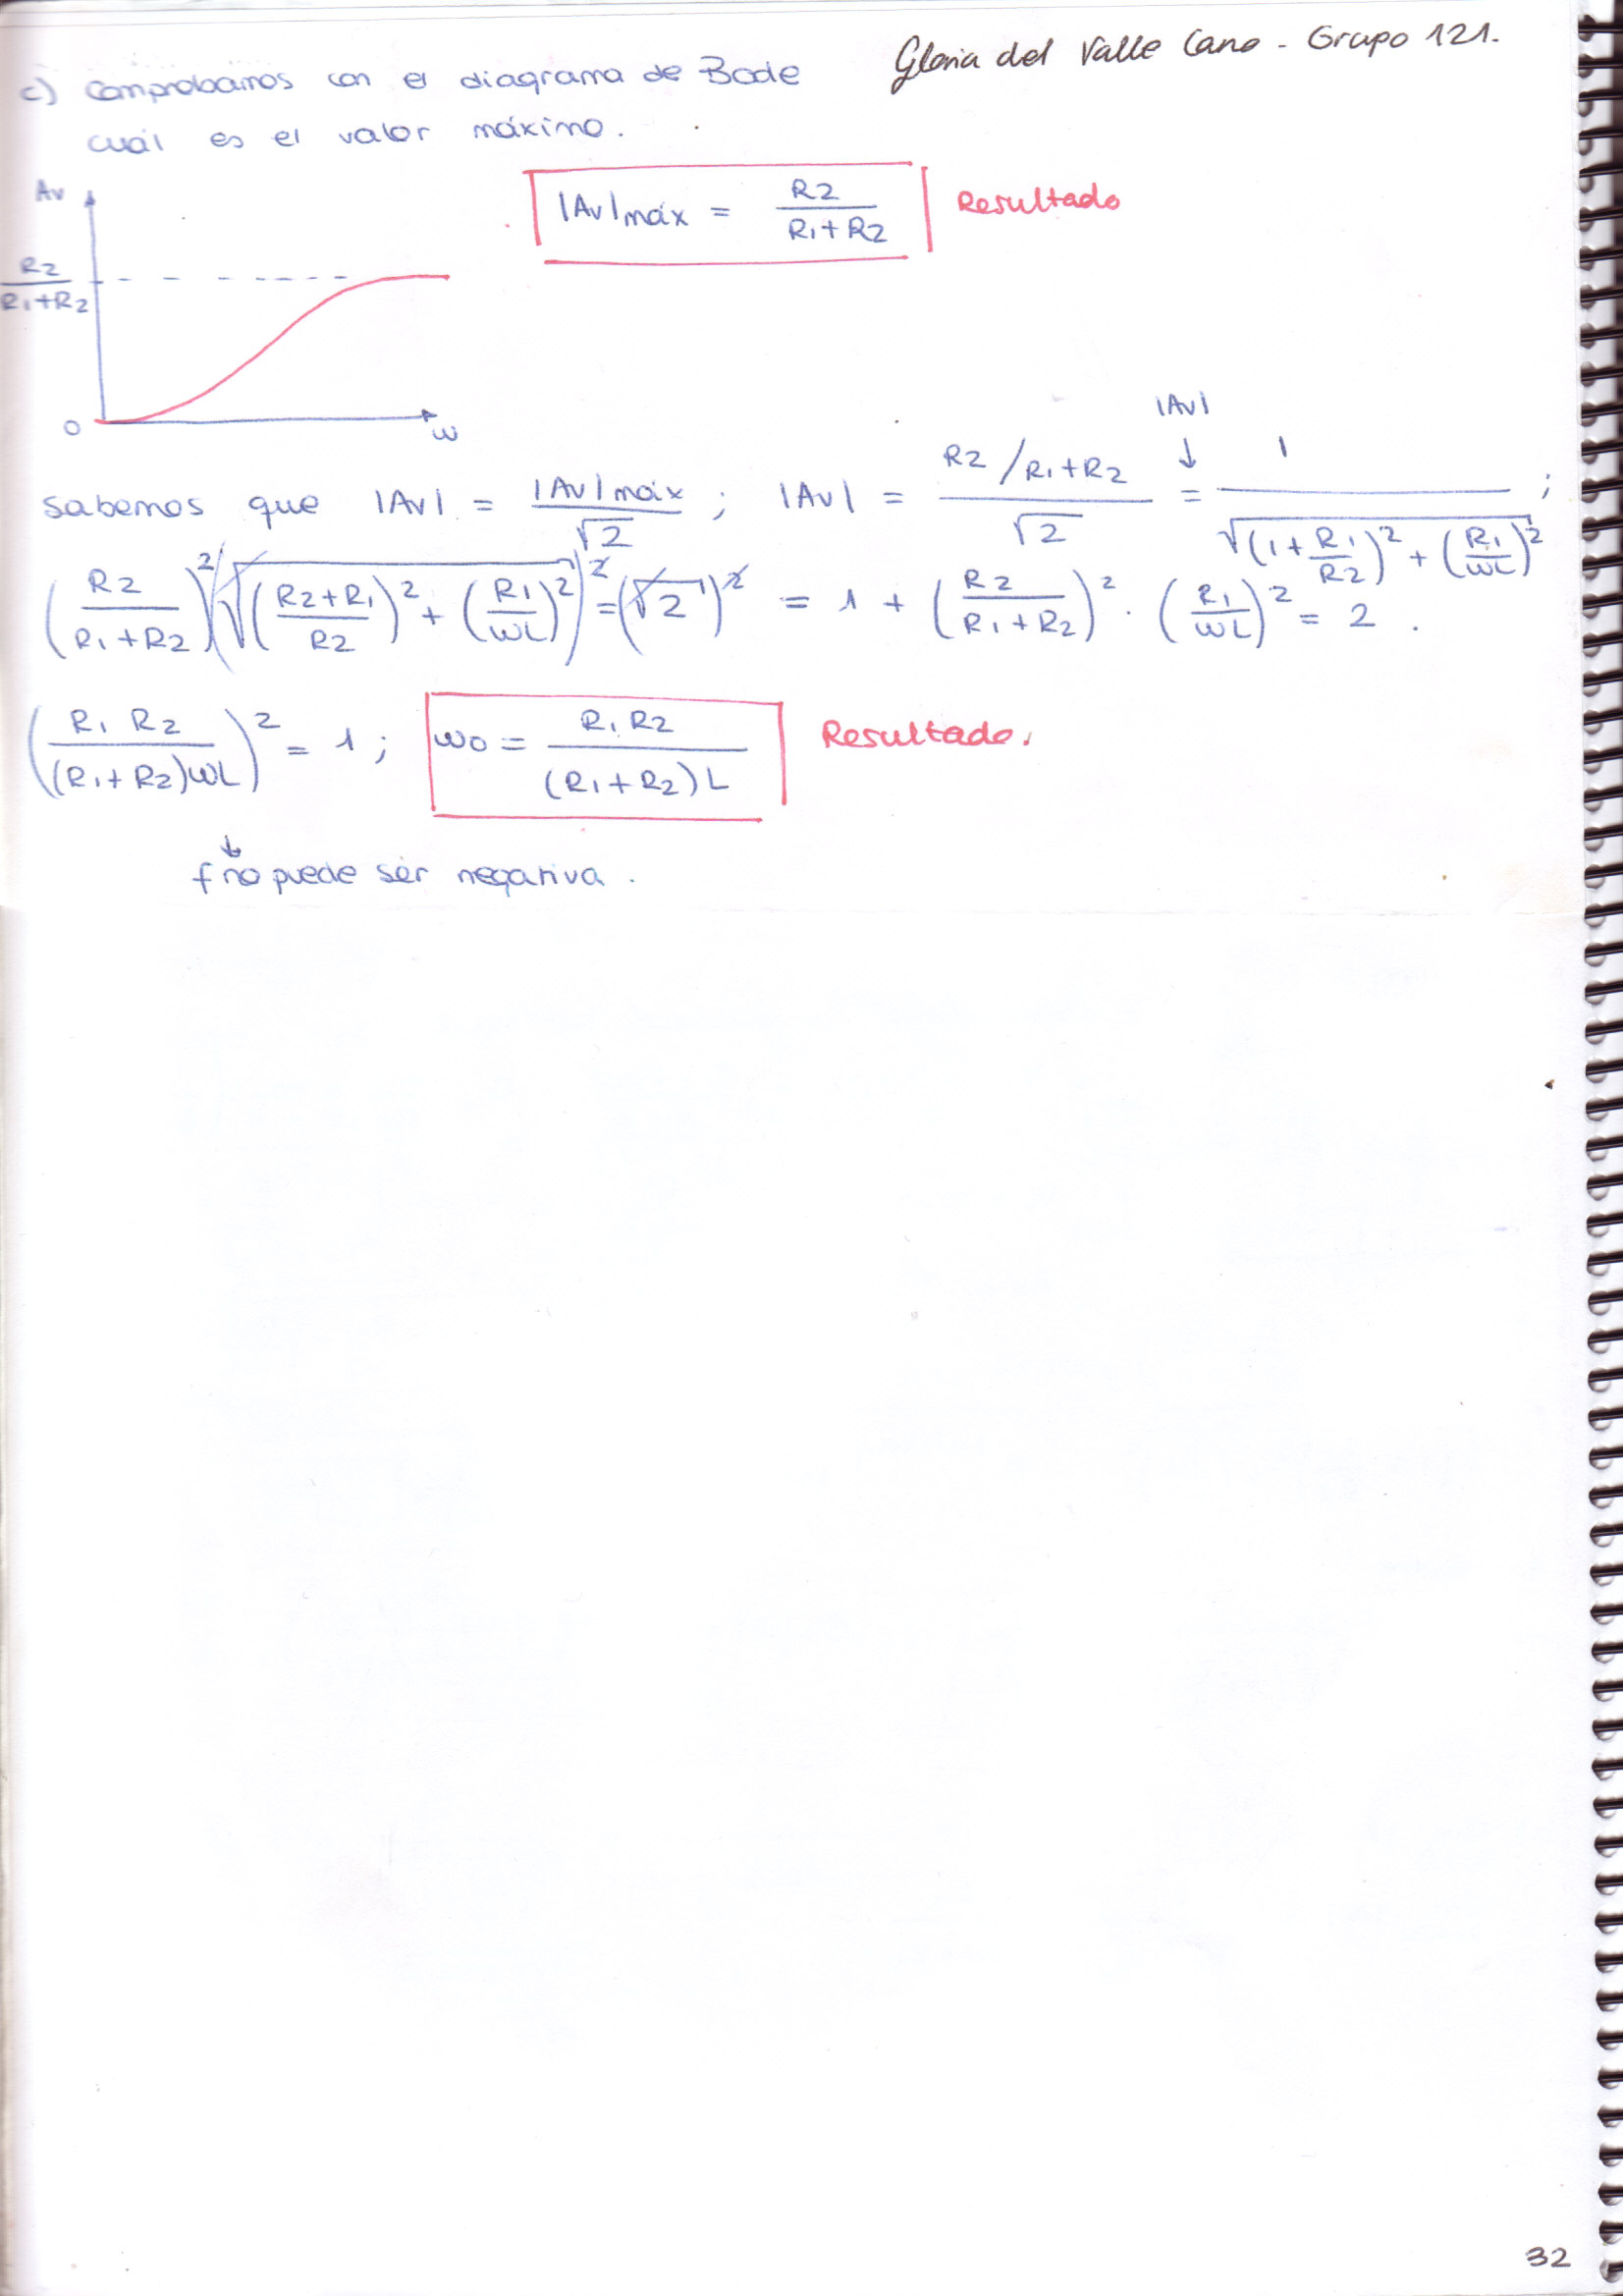 Gloria del Valle Cano - Grupo 121.
c) Comprobamos con el diagrama de Bode
cuál es el valor máximo.
|Av|máx = R2 / (R1+R2) Resultado
Av
R2 / (R1+R2)
0
ω
Sabemos que |Av| = |Av|máx / √2 ; |Av| = (R2/R1+R2) / √2 = 1 / √((1+R1/R2)² + (R1/ωL)²) ;
|Av| ↓
(R2 / (R1+R2))² (√((R2+R1 / R2)² + (R1/ωL)²))² = (√2)² = 1 + (R2 / (R1+R2))² · (R1/ωL)² = 2 .
(R1 R2 / (R1+R2)ωL)² = 1 ; ω0 = R1 R2 / (R1+R2)L Resultado.
↓
f no puede ser negativa .
32